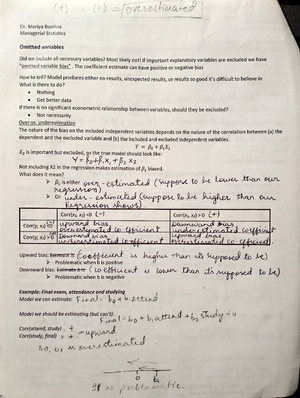 (+) = (+) = /overestimated
Dr. Mariya Burdina
Managerial Statistics
Omitted variables
Did we include all necessary variables? Most likely not! If important explanatory variables are excluded we have
"omitted variable bias". The coefficient estimate can have positive or negative bias
How to tell? Model produces either no results, unexpected results, or results so good it's difficult to believe in
What is there to do?
• Nothing
• Get better data
If there is no significant econometric relationship between variables, should they be excluded?
• Not necessarily
Over vs. underestimation
The nature of the bias on the included independent variables depends on the nature of the correlation between (a) the
dependent and the excluded variable and (b) the included and excluded independent variables.
Y = β₀ + β₁X₁
X₂ is important but excluded, so the true model should look like:
Y = β₀ + β₁X₁ + β₂ X₂
Not including X2 in the regression makes estimation of β₁ biased.
What does it mean?
➢ β₁ is either over-estimated (suppose to be lower than our
regression)
➢ Or under-estimated (suppose to be higher than our
Regression shows)
Corr(x₁, x₂) <0 (-) Corr(x₁, x₂) >0 (+)
Corr(y, x₂) <0 (-) upward bias, overestimated coefficient Downward bias underestimated coefficient
Corr(y, x₂) >0 (+) Downward bias underestimated coefficient upward bias, overestimated coefficient
Upward bias: (Coefficient is higher than its supposed to be)
➢ Problematic when b is positive
Downward bias: (coefficient is lower than its supposed to be)
➢ Problematic when b is negative
Example: Final exam, attendance and studying
Model we can estimate: Final = b₀ + b₁ attend
Model we should be estimating (but can't):
Final = b₀ + b₁ attend + b₂ study + u
Corr(attend, study) = +
Corr(study, final) = + = upward
so, b₁ is overestimated
0 b₁
It is problematic.